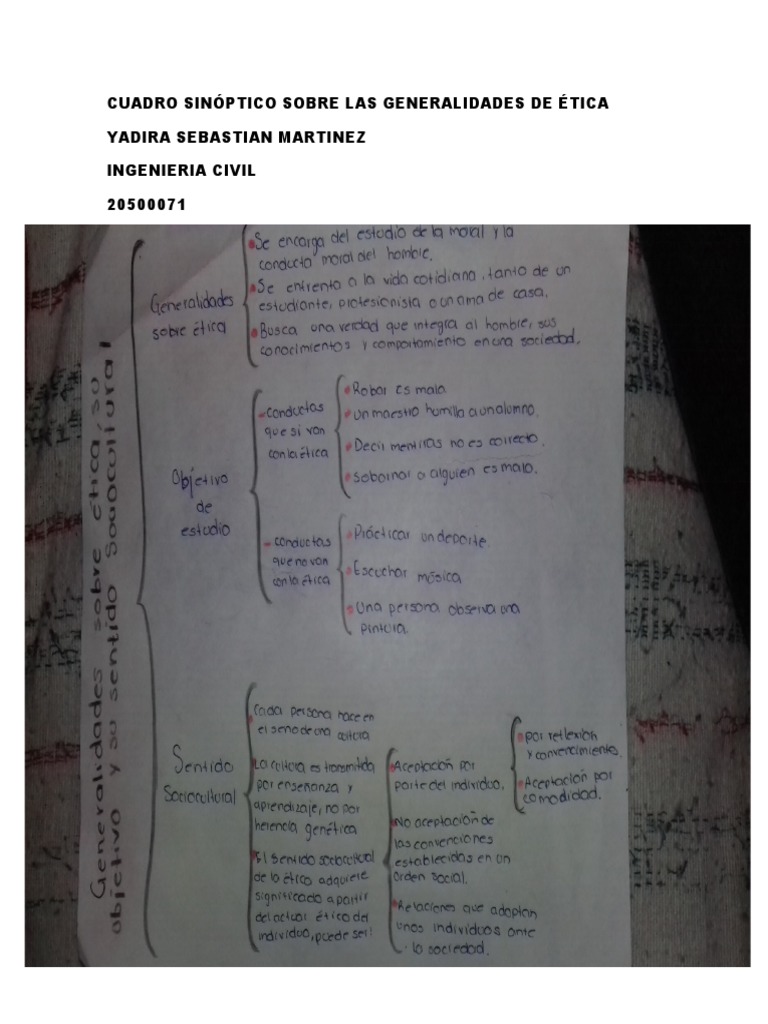 CUADRO SINÓPTICO SOBRE LAS GENERALIDADES DE ÉTICA
YADIRA SEBASTIAN MARTINEZ
INGENIERIA CIVIL
20500071
Generalidades sobre ética, su
objetivo y su sentido Sociocultural
Generalidades
sobre ética
Se encarga del estudio de la moral y la
conducta moral del hombre.
Se enfrenta a la vida cotidiana, tanto de un
estudiante, profesionista o un ama de casa.
Busca una verdad que integra al hombre, sus
conocimientos y comportamiento en una sociedad.
Objetivo
de
estudio
- conductas
que si van
con la ética
Robar es malo
un maestro humilla a un alumno.
Decir mentiras no es correcto.
sobornar a alguien es malo.
- conductas
que no van
con la ética
Prácticar un deporte.
Escuchar música
Una persona observa una
pintura.
Sentido
Sociocultural
Cada persona nace en
el seno de una cultura
La cultura es transmitida
por enseñanza y
aprendizaje, no por
herencia genética
El sentido sociocultural
de lo ético adquiere
significado a partir
del actuar ético del
individuo, puede ser:
Aceptación por
parte del individuo.
por reflexión
y convencimiento.
Aceptación por
comodidad.
No aceptación de
las convenciones
establecidas en un
orden social.
Relaciones que adoptan
unos individuos ante
la sociedad.